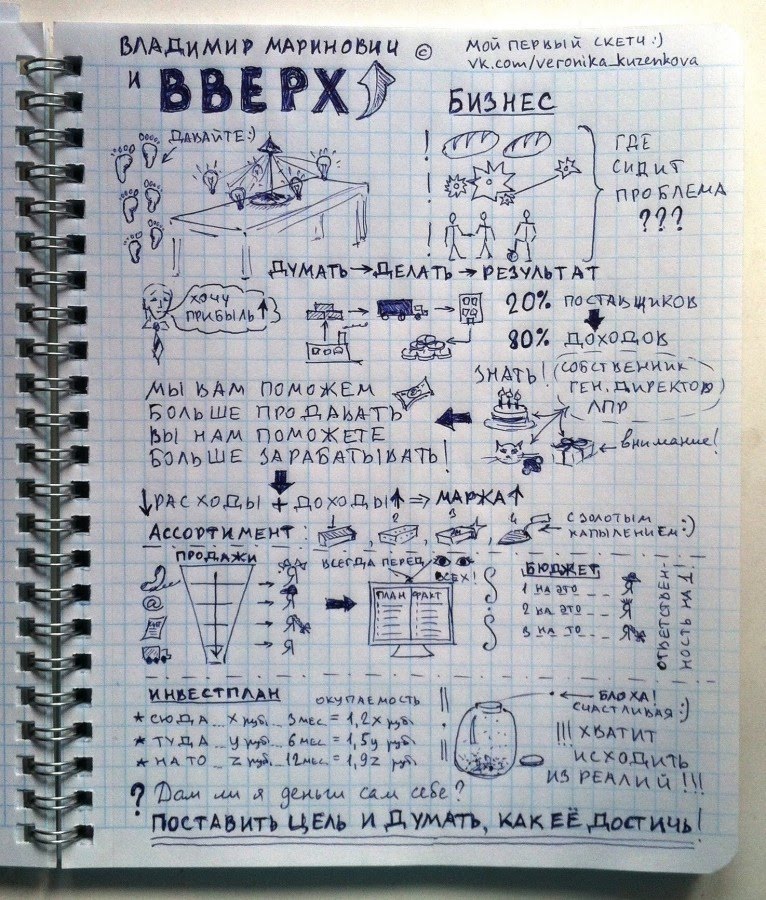 ВЛАДИМИР МАРИНОВИЧ ©
И ВВЕРХ
МОЙ ПЕРВЫЙ СКЕТЧ :)
vk.com/veronika_kuzenkova
БИЗНЕС
ДАВАЙТЕ :)
!
!
!
ГДЕ
СИДИТ
ПРОБЛЕМА
???
ДУМАТЬ → ДЕЛАТЬ → РЕЗУЛЬТАТ
ХОЧУ
ПРИБЫЛЬ ↑
20% ПОСТАВЩИКОВ
80% ДОХОДОВ
ЗНАТЬ!
СОБСТВЕННИК
ГЕН. ДИРЕКТОР
ЛПР
ВНИМАНИЕ!
МЫ ВАМ ПОМОЖЕМ
БОЛЬШЕ ПРОДАВАТЬ
ВЫ НАМ ПОМОЖЕТЕ
БОЛЬШЕ ЗАРАБАТЫВАТЬ!
↓ РАСХОДЫ + ДОХОДЫ ↑ ⇒ МАРЖА ↑
АССОРТИМЕНТ: 1, 2, 3, 4
С ЗОЛОТЫМ
НАПЫЛЕНИЕМ :)
ПРОДАЖИ
@
Я
Я
Я
Я
ВСЕГДА ПЕРЕД
ВСЕХ!
ПЛАН ФАКТ
БЮДЖЕТ
1 НА ЭТО Я
2 НА ЭТО Я
3 НА ТО Я
ОТВЕТСТВЕН-
НОСТЬ НА 1.
ИНВЕСТПЛАН ОКУПАЕМОСТЬ
★ СЮДА ... X руб. 3 мес = 1,2x руб.
★ ТУДА ... У руб. 6 мес = 1,5y руб.
★ НА ТО ... Z руб. 12 мес = 1,9z руб.
БЛОХА!
СЧАСТЛИВАЯ :)
!!! ХВАТИТ
ИСХОДИТЬ
ИЗ РЕАЛИЙ !!!
? Дам ли я деньги сам себе?
ПОСТАВИТЬ ЦЕЛЬ И ДУМАТЬ, КАК ЕЁ ДОСТИЧЬ!